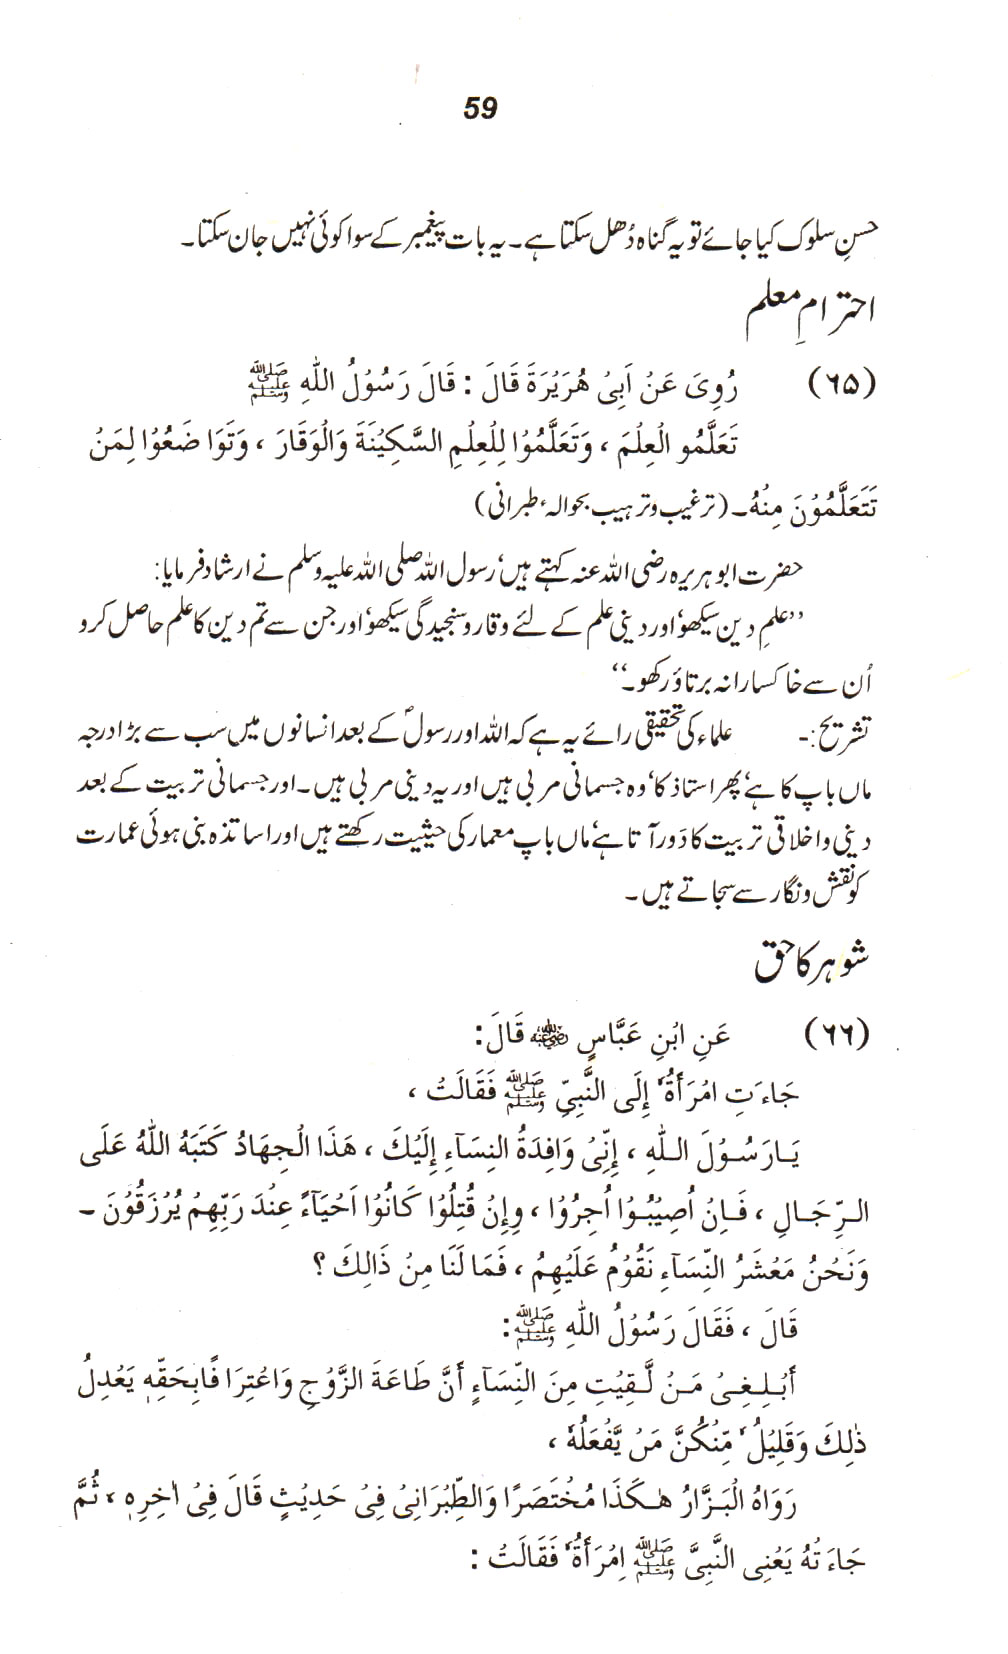 59
حسنِ سلوک کیا جائے تو یہ گناہ دُھل سکتا ہے۔ یہ بات پیغمبر کے سوا کوئی نہیں جان سکتا۔
احترامِ معلم
(۶۵) رُوِیَ عَنْ اَبِیْ هُرَیْرَةَ قَالَ : قَالَ رَسُوْلُ اللهِ ﷺ
تَعَلَّمُو الْعِلْمَ ، وَتَعَلَّمُوْا لِلْعِلْمِ السَّکِیْنَةَ وَالْوَقَارَ ، وَتَوَا ضَعُوْا لِمَنْ
تَتَعَلَّمُوْنَ مِنْهُ۔ (ترغیب و ترہیب بحوالۂ طبرانی)
حضرت ابو ہریرہ رضی اللہ عنہ کہتے ہیں، رسول اللہ صلی اللہ علیہ وسلم نے ارشاد فرمایا:
’’علمِ دین سیکھو، اور دینی علم کے لئے وقار و سنجیدگی سیکھو، اور جن سے تم دین کا علم حاصل کرو
اُن سے خاکسارانہ برتاؤ رکھو۔‘‘
تشریح:- علماء کی تحقیقی رائے یہ ہے کہ اللہ اور رسولؐ کے بعد انسانوں میں سب سے بڑا درجہ
ماں باپ کا ہے، پھر استاذ کا، وہ جسمانی مربی ہیں اور یہ دینی مربی ہیں۔ اور جسمانی تربیت کے بعد
دینی و اخلاقی تربیت کا دَور آتا ہے، ماں باپ معمار کی حیثیت رکھتے ہیں اور اساتذہ بنی ہوئی عمارت
کو نقش و نگار سے سجاتے ہیں۔
شوہر کا حق
(۶۶) عَنِ ابْنِ عَبَّاسٍ رضی اللہ عنہ قَالَ:
جَاءَتِ امْرَأَةٌ إِلَی النَّبِیِّ ﷺ فَقَالَتْ ،
یَارَسُوْلَ اللهِ ، إِنِّیْ وَافِدَةُ النِسَآءِ إِلَیْكَ ، هَذَا الْجِهَادُ کَتَبَهُ اللهُ عَلَی
الرِّجَالِ ، فَاِنْ اُصِیْبُوْا اُجِرُوْا ، وِإِنْ قُتِلُوْا کَانُوْا اَحْیَآءً عِنْدَ رَبِّهِمْ یُرْزَقُوْنَ۔
وَنَحْنُ مَعْشَرُ النِّسَآءِ نَقُوْمُ عَلَیْهِمْ ، فَمَا لَنَا مِنْ ذَالِكَ ؟
قَالَ ، فَقَالَ رَسُوْلُ اللهِ ﷺ:
أَبْلِغِیْ مَنْ لَّقِیْتِ مِنَ النِّسَآءِ أَنَّ طَاعَةَ الزَّوْجِ وَاعْتِرَا فًابِحَقِّهٖ یَعْدِلُ
ذٰلِكَ وَقَلِیْلٌ مِّنْکُنَّ مَنْ یَّفْعَلُهٗ ،
رَوَاهُ الْبَزَّارُ هٰکَذَا مُخْتَصَرًا وَالطِّبْرَانِیْ فِیْ حَدِیْثٍ قَالَ فِیْ اٰخِرِهٖ ، ثُمَّ
جَاءَ تْهُ یَعْنِی النَّبِیَّ ﷺ اِمْرَأَةٌ فَقَالَتْ :